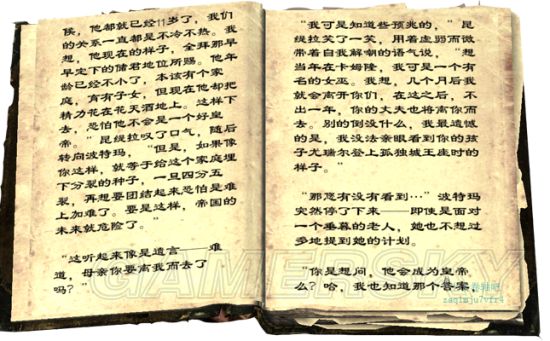 候，他都就已经11岁了，我们
的关系一直都是不冷不热。我
想，他现在的样子，全拜那早
早定下的储君地位所赐。他年
龄已经不小了，本该有个家
庭，育有子女，但现在他却把
精力花在花天酒地上。这样下
去，恐怕他不会是一个好皇
帝。”昆缇拉叹了口气，随后
转向波特玛，“但是，如果像
你这样，就等于给这个家庭埋
下分裂的种子，一旦四分五
裂，再想要团结起来恐怕是难
上加难了。要是这样，帝国的
未来就危险了。”
“这听起来像是遗言——难
道，母亲你要离我而去了
吗？”
“我可是知道些预兆的，”昆
缇拉笑了一笑，用着虚弱而微
带着自我解嘲的语气说，“想
当年在卡姆隆，我可是一个有
名的女巫。我想，几个月后我
就会离开你们，在这之后，不
出一年，你的丈夫也将离你而
去。别的倒没什么，我最遗憾
的是，我没法亲眼看到你的孩
子尤瑞尔登上孤独城王座时的
样子。”
“那您有没有看到…”波特玛
突然停了下来——即使是面对
一个垂暮的老人，她也不想过
多地提到她的计划。
“你是想问，他会成为皇帝
么？哈，我也知道那个答案，
GAMERSKY
zaqimju7vfr4